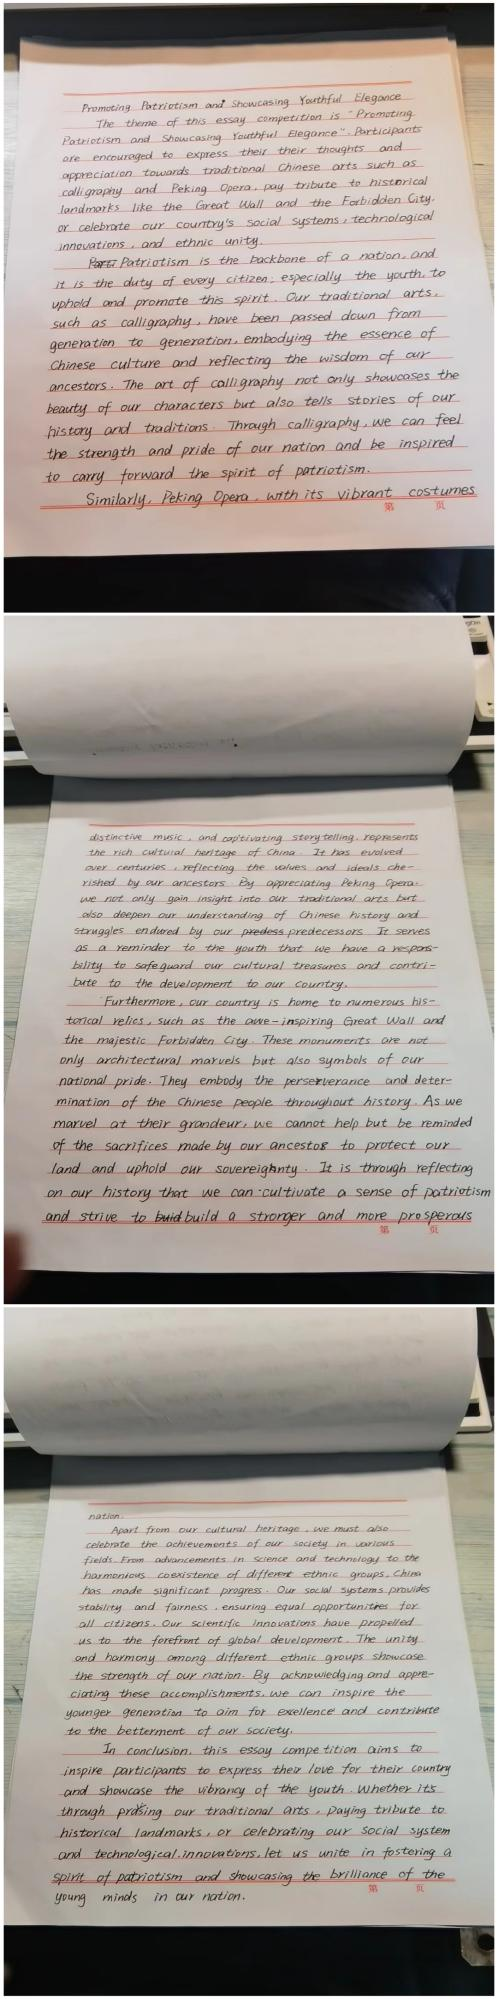 Promoting Patriotism and Showcasing Youthful Elegance
The theme of this essay competition is "Promoting
Patriotism and Showcasing Youthful Elegance". Participants
are encouraged to express their their thoughts and
appreciation towards traditional Chinese arts such as
calligraphy and Peking Opera, pay tribute to historical
landmarks like the Great Wall and the Forbidden City.
or celebrate our country's social systems, technological
innovations, and ethnic unity.
Patriotism is the backbone of a nation, and
it is the duty of every citizen, especially the youth, to
uphold and promote this spirit. Our traditional arts,
such as calligraphy, have been passed down from
generation to generation, embodying the essence of
Chinese culture and reflecting the wisdom of our
ancestors. The art of calligraphy not only showcases the
beauty of our characters but also tells stories of our
history and traditions. Through calligraphy, we can feel
the strength and pride of our nation and be inspired
to carry forward the spirit of patriotism.
Similarly, Peking Opera, with its vibrant costumes
第 页
distinctive music, and captivating storytelling, represents
the rich cultural heritage of China. It has evolved
over centuries, reflecting the values and ideals che-
rished by our ancestors. By appreciating Peking Opera.
we not only gain insight into our traditional arts but
also deepen our understanding of Chinese history and
struggles endured by our predess predecessors. It serves
as a reminder to the youth that we have a respons-
bility to safeguard our cultural treasures and contri-
bute to the development to our country.
Furthermore, our country is home to numerous his-
torical relics, such as the awe-inspiring Great Wall and
the majestic Forbidden City. These monuments are not
only architectural marvels but also symbols of our
national pride. They embody the perserverance and deter-
mination of the Chinese people throughout history. As we
marvel at their grandeur, we cannot help but be reminded
of the sacrifices made by our ancestors to protect our
land and uphold our sovereighnty. It is through reflecting
on our history that we can cultivate a sense of patriotism
and strive to buid build a stronger and more prosperous
第 页
nation.
Apart from our cultural heritage, we must also
celebrate the achievements of our society in various
fields. From advancements in science and technology to the
harmonious coexistence of different ethnic groups, China
has made significant progress. Our social systems provides
stability and fairness, ensuring equal opportunities for
all citizens. Our scientific innovations have propelled
us to the forefront of global development. The unity
and harmony among different ethnic groups showcase
the strength of our nation. By acknowledging and appre-
ciating these accomplishments, we can inspire the
younger generation to aim for excellence and contribute
to the betterment of our society.
In conclusion, this essay competition aims to
inspire participants to express their love for their country
and showcase the vibrancy of the youth. Whether its
through praising our traditional arts, paying tribute to
historical landmarks, or celebrating our social system
and technological innovations, let us unite in fostering a
spirit of patriotism and showcasing the brilliance of the
第 页
young minds in our nation.